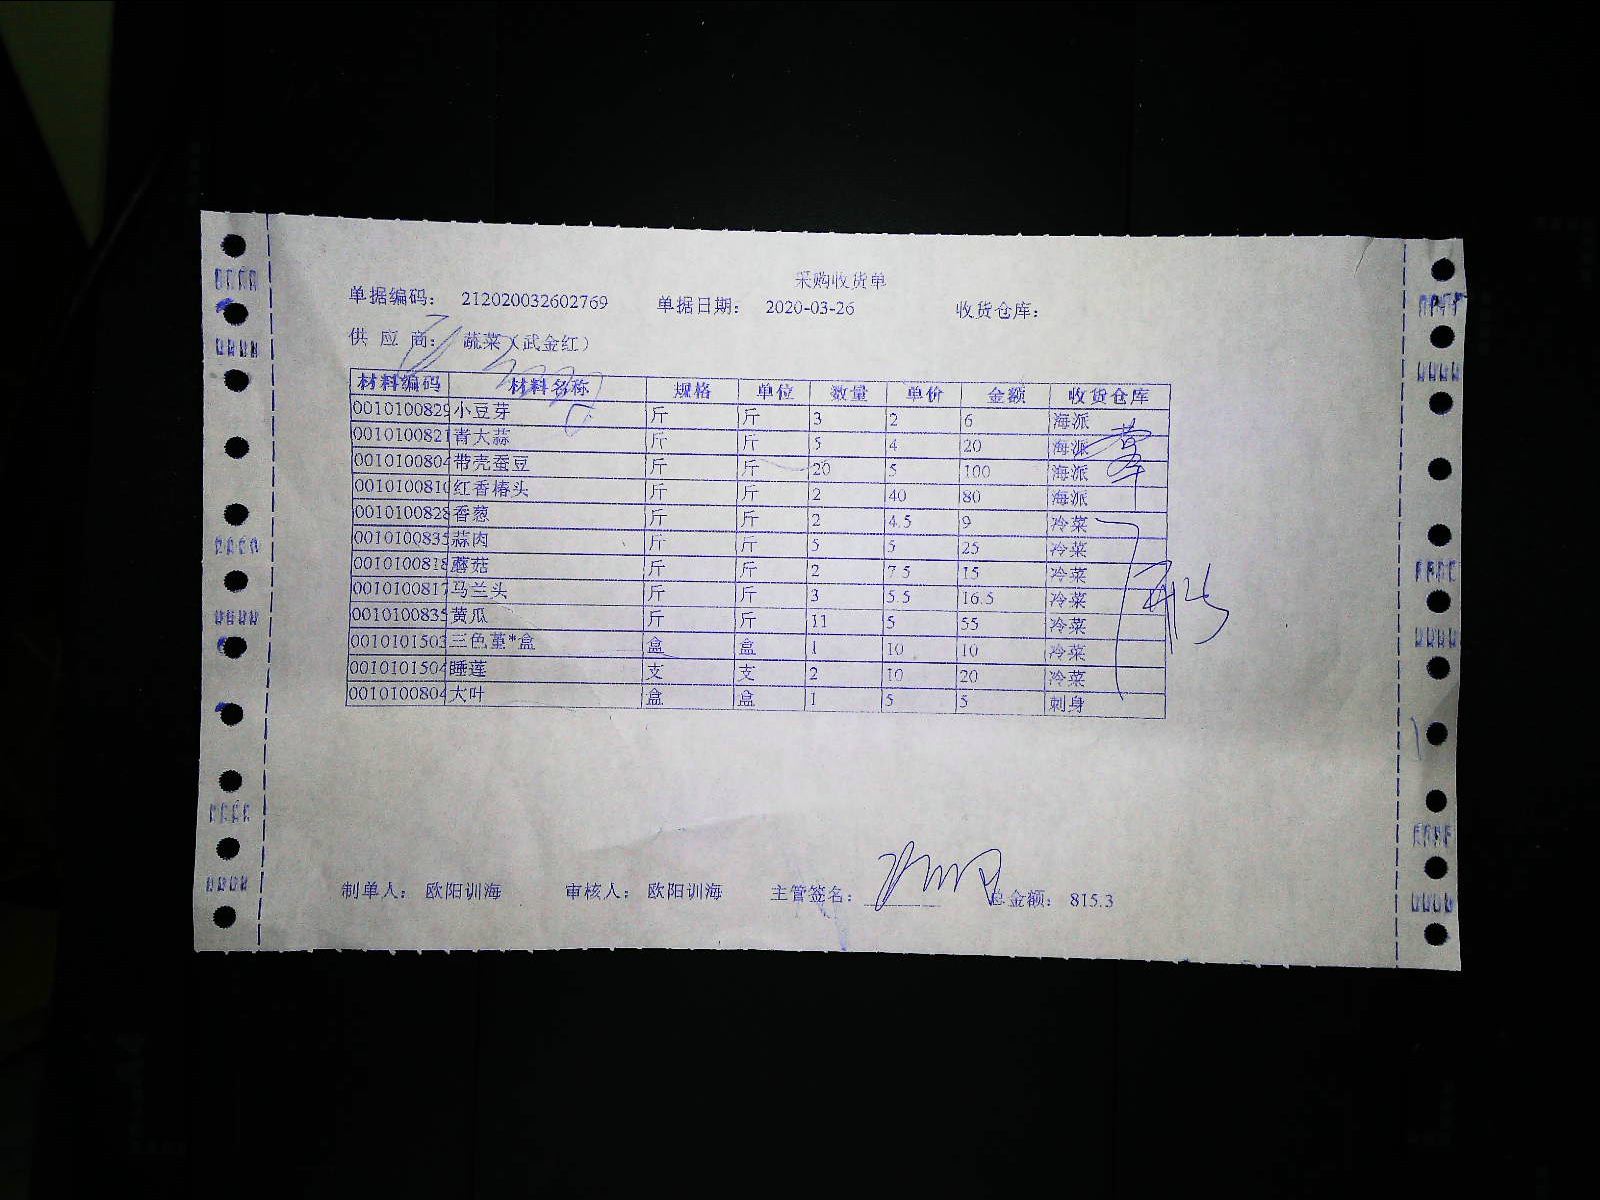 采购收货单
单据编码： 212020032602769 单据日期： 2020-03-26 收货仓库：
供 应 商： 蔬菜（武金红）
材料编码 材料名称 规格 单位 数量 单价 金额 收货仓库
0010100829 小豆芽 斤 斤 3 2 6 海派
0010100821 青大蒜 斤 斤 5 4 20 海派
0010100804 带壳蚕豆 斤 斤 20 5 100 海派
0010100810 红香椿头 斤 斤 2 40 80 海派
0010100828 香葱 斤 斤 2 4.5 9 冷菜
0010100835 蒜肉 斤 斤 5 5 25 冷菜
0010100818 蘑菇 斤 斤 2 7.5 15 冷菜
0010100817 马兰头 斤 斤 3 5.5 16.5 冷菜
0010100835 黄瓜 斤 斤 11 5 55 冷菜
0010101503 三色堇*盒 盒 盒 1 10 10 冷菜
0010101504 睡莲 支 支 2 10 20 冷菜
0010100804 大叶 盒 盒 1 5 5 刺身
制单人： 欧阳训海 审核人： 欧阳训海 主管签名： 总金额： 815.3